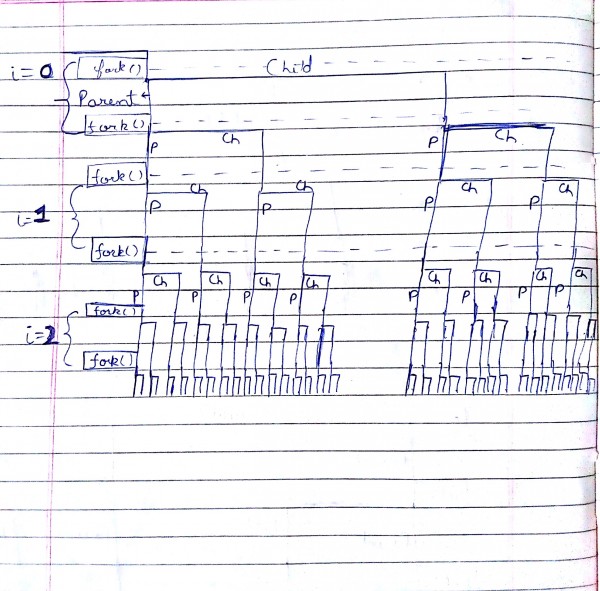 i=0 fork() Child
Parent
fork()
P Ch P Ch
fork()
Ch Ch Ch Ch
i=1 P P P P
fork()
Ch Ch Ch Ch Ch Ch Ch Ch
P P P P P P P P
fork()
i=2
fork()